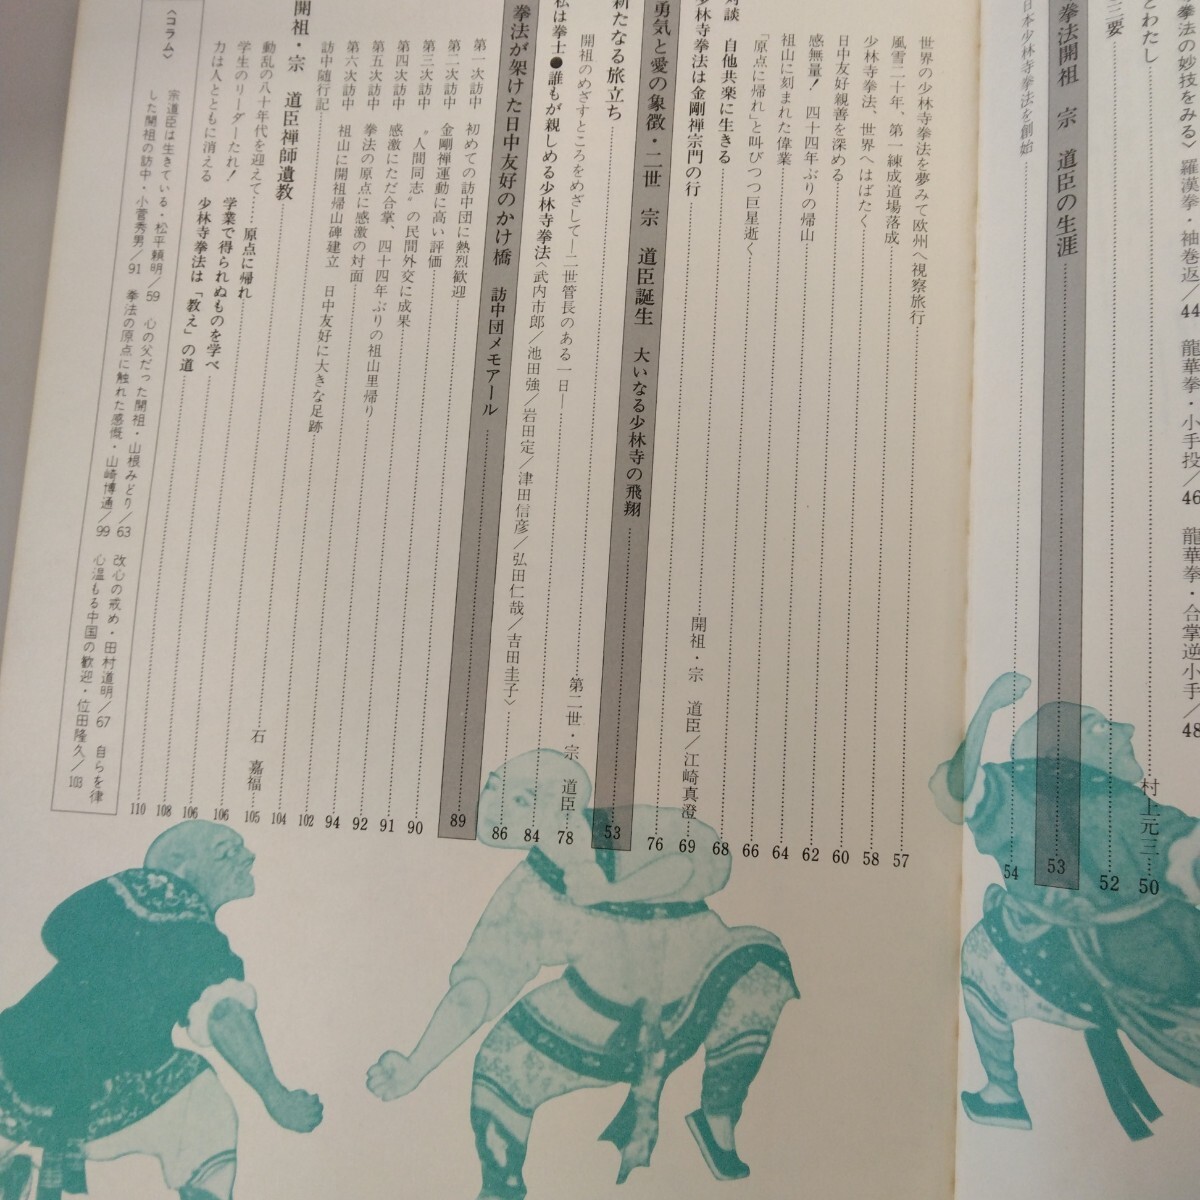 拳法の妙技をみる〉羅漢拳・袖巻返／44 龍華拳・小手投／46 龍華拳・合掌逆小手／48
とわたし 村上元三 50
三要 52
拳法開祖 宗 道臣の生涯 53
日本少林寺拳法を創始 54
世界の少林寺拳法を夢みて欧州へ視察旅行 57
風雪二十年、第一錬成道場落成 58
少林寺拳法、世界へはばたく 60
日中友好親善を深める 62
感無量！ 四十四年ぶりの帰山 64
祖山に刻まれた偉業 66
「原点に帰れ」と叫びつつ巨星逝く 68
対談 自他共楽に生きる
少林寺拳法は金剛禅宗門の行 開祖・宗 道臣／江崎真澄 69
勇気と愛の象徴・二世 宗 道臣誕生 大いなる少林寺の飛翔 53
新たなる旅立ち 76
開祖のめざすところをめざして―二世管長のある一日― 第二世・宗 道臣 78
私は拳士●誰もが親しめる少林寺拳法〈武内市郎／池田強／岩田定／津田信彦／弘田仁哉／吉田圭子〉 84
拳法が架けた日中友好のかけ橋 訪中団メモアール 89
第一次訪中 初めての訪中団に熱烈歓迎 86
第二次訪中 金剛禅運動に高い評価 90
第三次訪中 〝人間同志〟の民間外交に成果 91
第四次訪中 感激にただ合掌、四十四年ぶりの祖山里帰り 92
第五次訪中 拳法の原点に感激の対面 94
第六次訪中 祖山に開祖帰山碑建立 日中友好に大きな足跡 102
訪中随行記 石 嘉福 104
開祖・宗 道臣禅師遺教 105
動乱の八十年代を迎えて……原点に帰れ 106
学生のリーダーたれ！ 学業で得られぬものを学べ 106
力は人とともに消える 少林寺拳法は「教え」の道 108
110
〈コラム〉
宗道臣は生きている・松平頼明／59 心の父だった開祖・山根みどり／63 改心の戒め・田村道明／67 自らを律
した開祖の訪中・小菅秀男／91 拳法の原点に触れた感慨・山崎博通／99 心温もる中国の歓迎・位田隆久／103